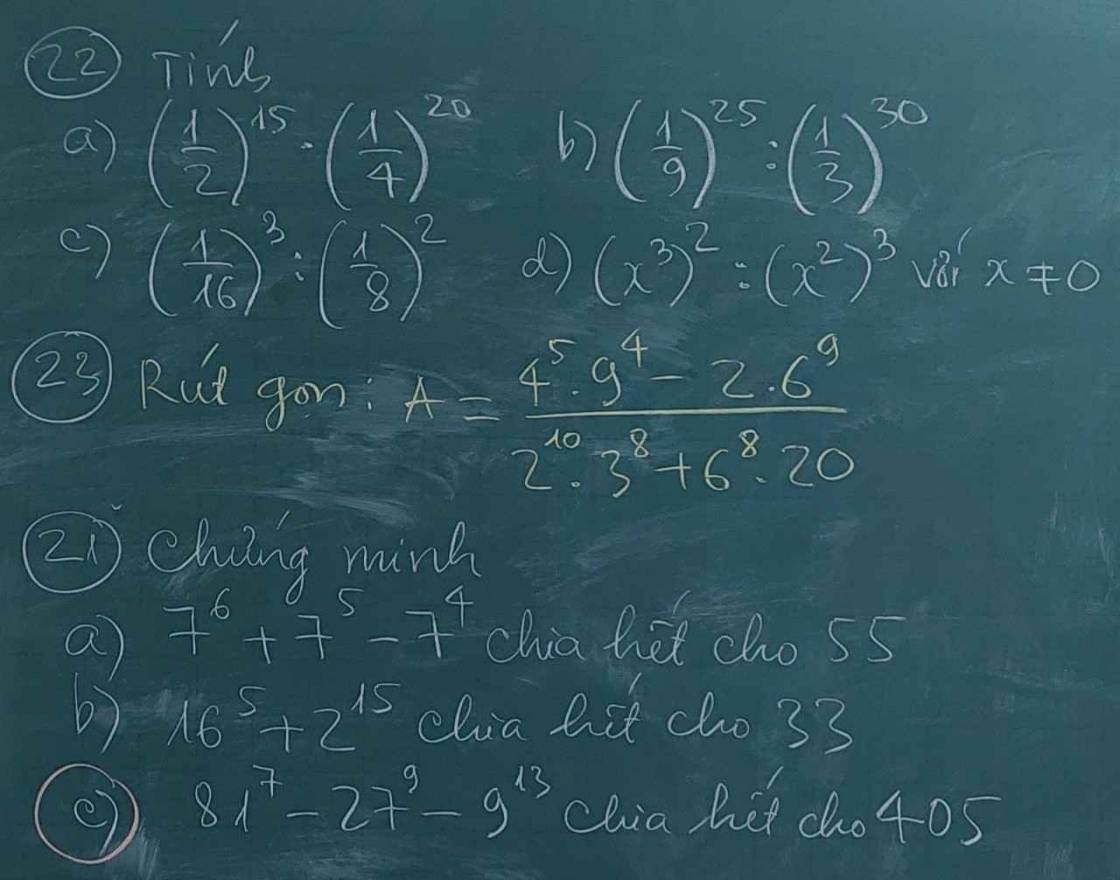 22 Tính
a) (1/2)^15 · (1/4)^20 b) (1/9)^25 : (1/3)^30
c) (1/16)^3 : (1/8)^2 d) (x^3)^2 : (x^2)^3 với x ≠ 0
23 Rút gọn: A = (4^5 . 9^4 - 2.6^9) / (2^10 . 3^8 + 6^8 . 20)
21 Chứng minh
a) 7^6 + 7^5 - 7^4 chia hết cho 55
b) 16^5 + 2^15 chia hết cho 33
c) 81^7 - 27^9 - 9^13 chia hết cho 405